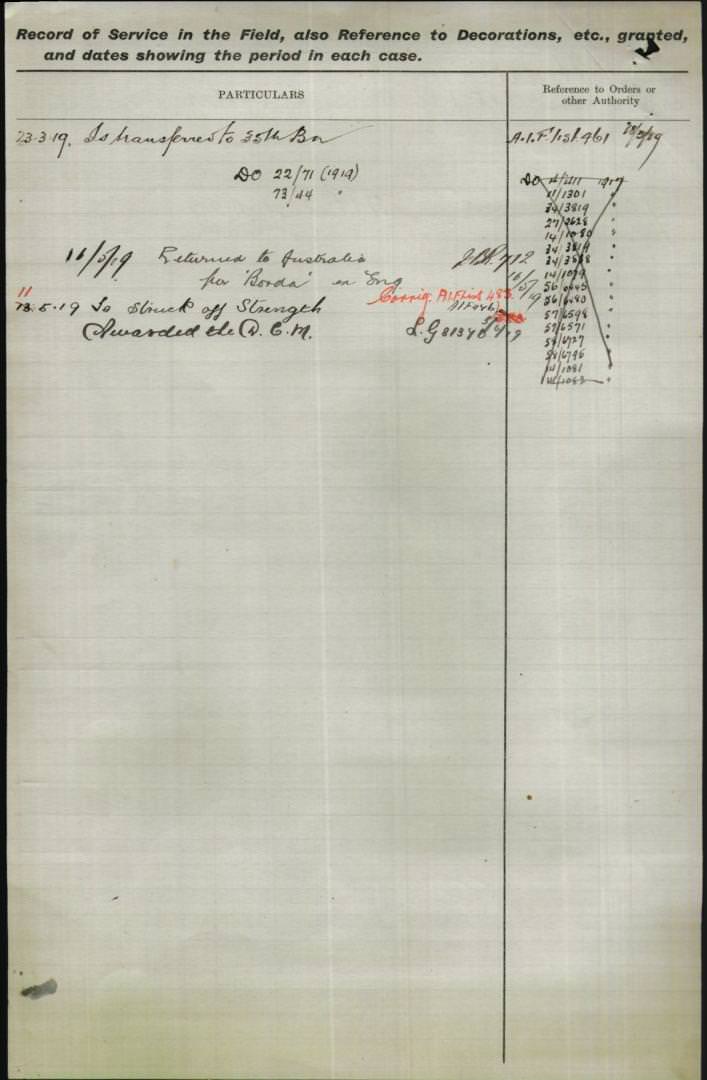 Record of Service in the Field, also Reference to Decorations, etc., granted,
and dates showing the period in each case.
PARTICULARS
Reference to Orders or
other Authority
23.3.19. Is transferred to 35th Bn
A.I.F. list 461
DO 22/71 (1919)
73/44 "
DO 1917
11/1301 "
34/3819 "
27/2628 "
14/1080 "
34/3819 "
34/3818 "
14/1079 "
56/6443 "
56/6480 "
57/6598 "
57/6571 "
58/6727 "
58/6796 "
14/1081 "
14/1083 "
11/5/19 Returned to Australia 712
per "Borda" ex Eng 11/5/19
11
13.5.19 Is Struck off Strength
Corrig. AIF List 483
Awarded the D.C.M. L.G 31340